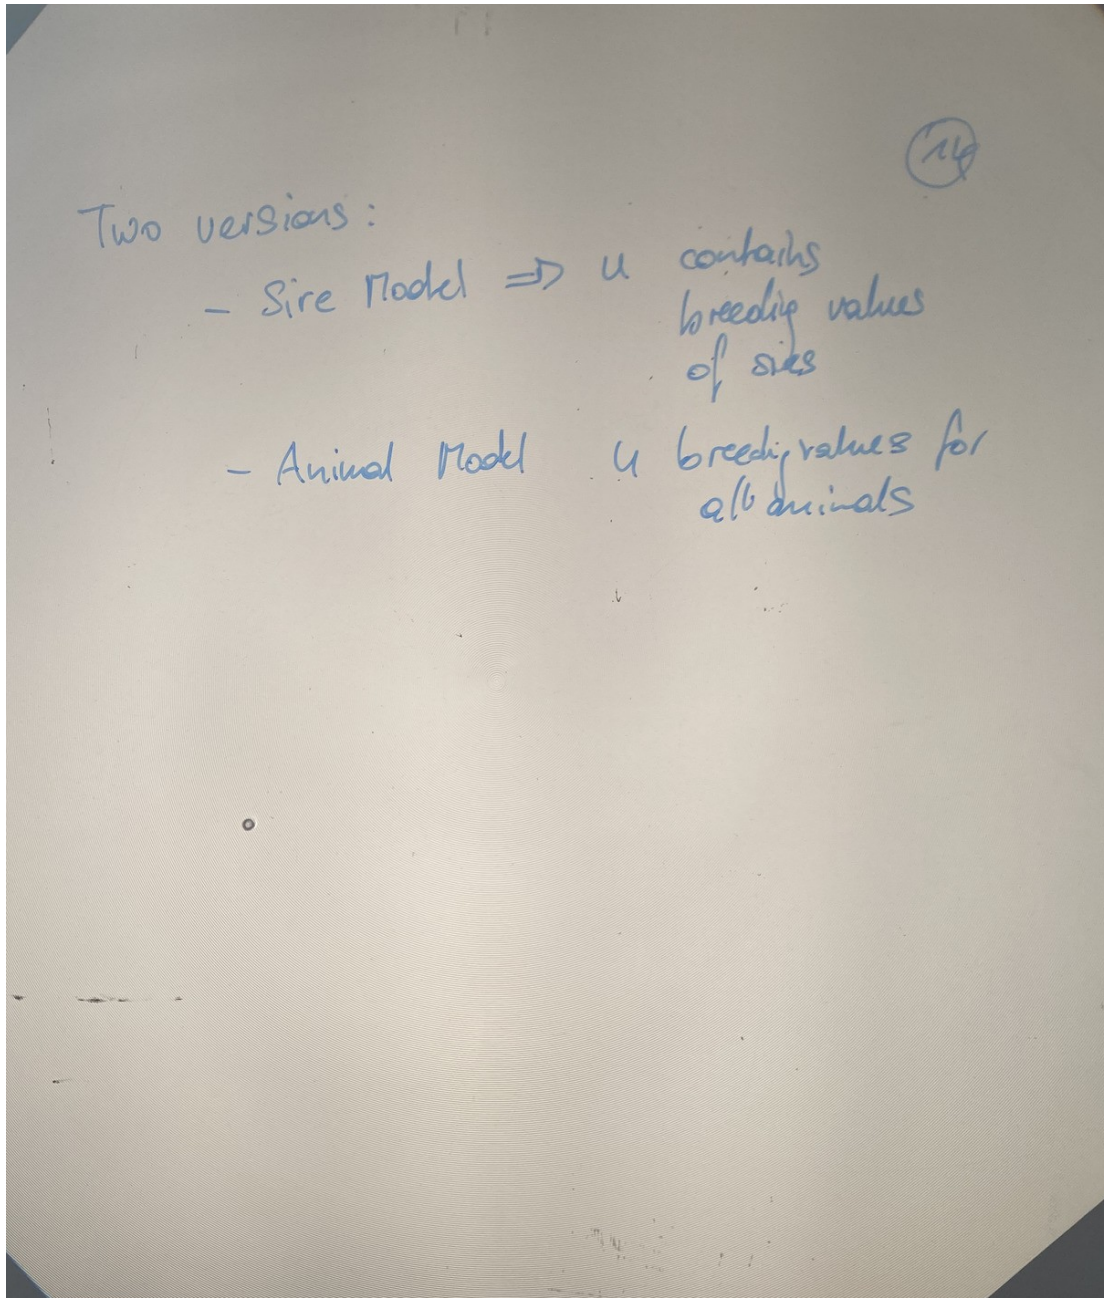 14
Two versions:
- Sire Model ⇒ u contains
breeding values
of sires
- Animal Model u breeding values for
all animals